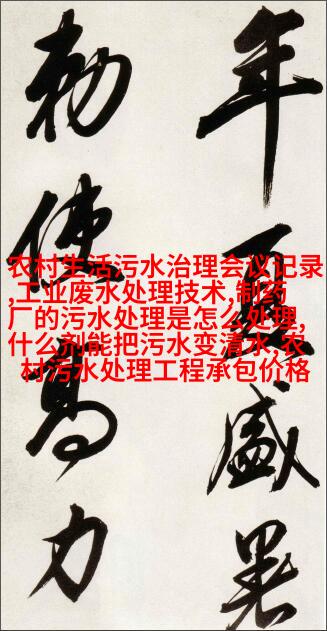 年夏盛暑
勅使高力
农村生活污水治理会议记录
,工业废水处理技术,制药
厂的污水处理是怎么处理,
什么剂能把污水变清水,农
村污水处理工程承包价格